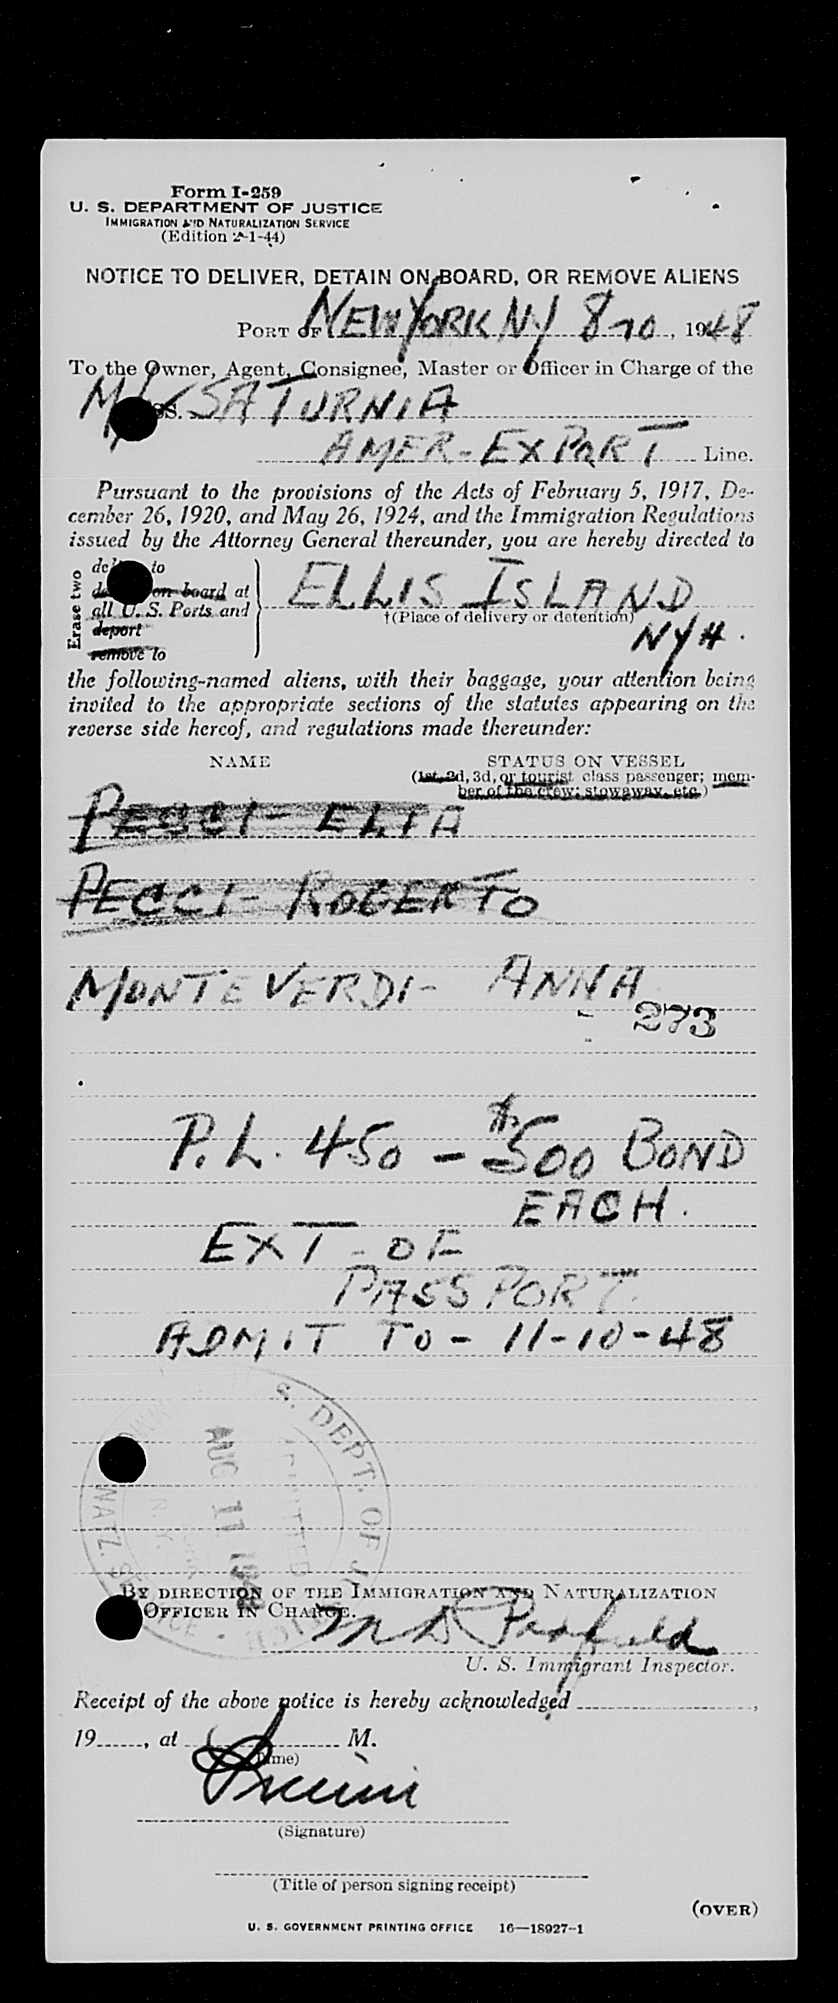 Form I-259
U. S. DEPARTMENT OF JUSTICE
IMMIGRATION AND NATURALIZATION SERVICE
(Edition 2-1-44)
NOTICE TO DELIVER, DETAIN ON BOARD, OR REMOVE ALIENS
PORT OF NEW YORK NY 8-10, 1948
To the Owner, Agent, Consignee, Master or Officer in Charge of the
M/V SS. SATURNIA
AMER-EXPORT Line.
Pursuant to the provisions of the Acts of February 5, 1917, De-
cember 26, 1920, and May 26, 1924, and the Immigration Regulations
issued by the Attorney General thereunder, you are hereby directed to
Erase two
to
on board at
all U. S. Ports and
deport
remove to
ELLIS ISLAND
†(Place of delivery or detention)
NYH.
the following-named aliens, with their baggage, your attention being
invited to the appropriate sections of the statutes appearing on the
reverse side hereof, and regulations made thereunder:
NAME STATUS ON VESSEL
(1st, 2d, 3d, or tourist class passenger; mem-
ber of the crew; stowaway, etc.)
PECCI - ELIA
PECCI - ROBERTO
MONTEVERDI - ANNA
273
P.L. 450 - $500 BOND
EACH.
EXT - OF
PASSPORT.
ADMIT TO - 11-10-48
S. DEPT. OF
AUG 11
NATZ.
BY DIRECTION OF THE IMMIGRATION AND NATURALIZATION
OFFICER IN CHARGE.
U. S. Immigrant Inspector.
Receipt of the above notice is hereby acknowledged ,
19 , at M.
(Time)
(Signature)
(Title of person signing receipt)
(OVER)
U. S. GOVERNMENT PRINTING OFFICE 16—18927-1